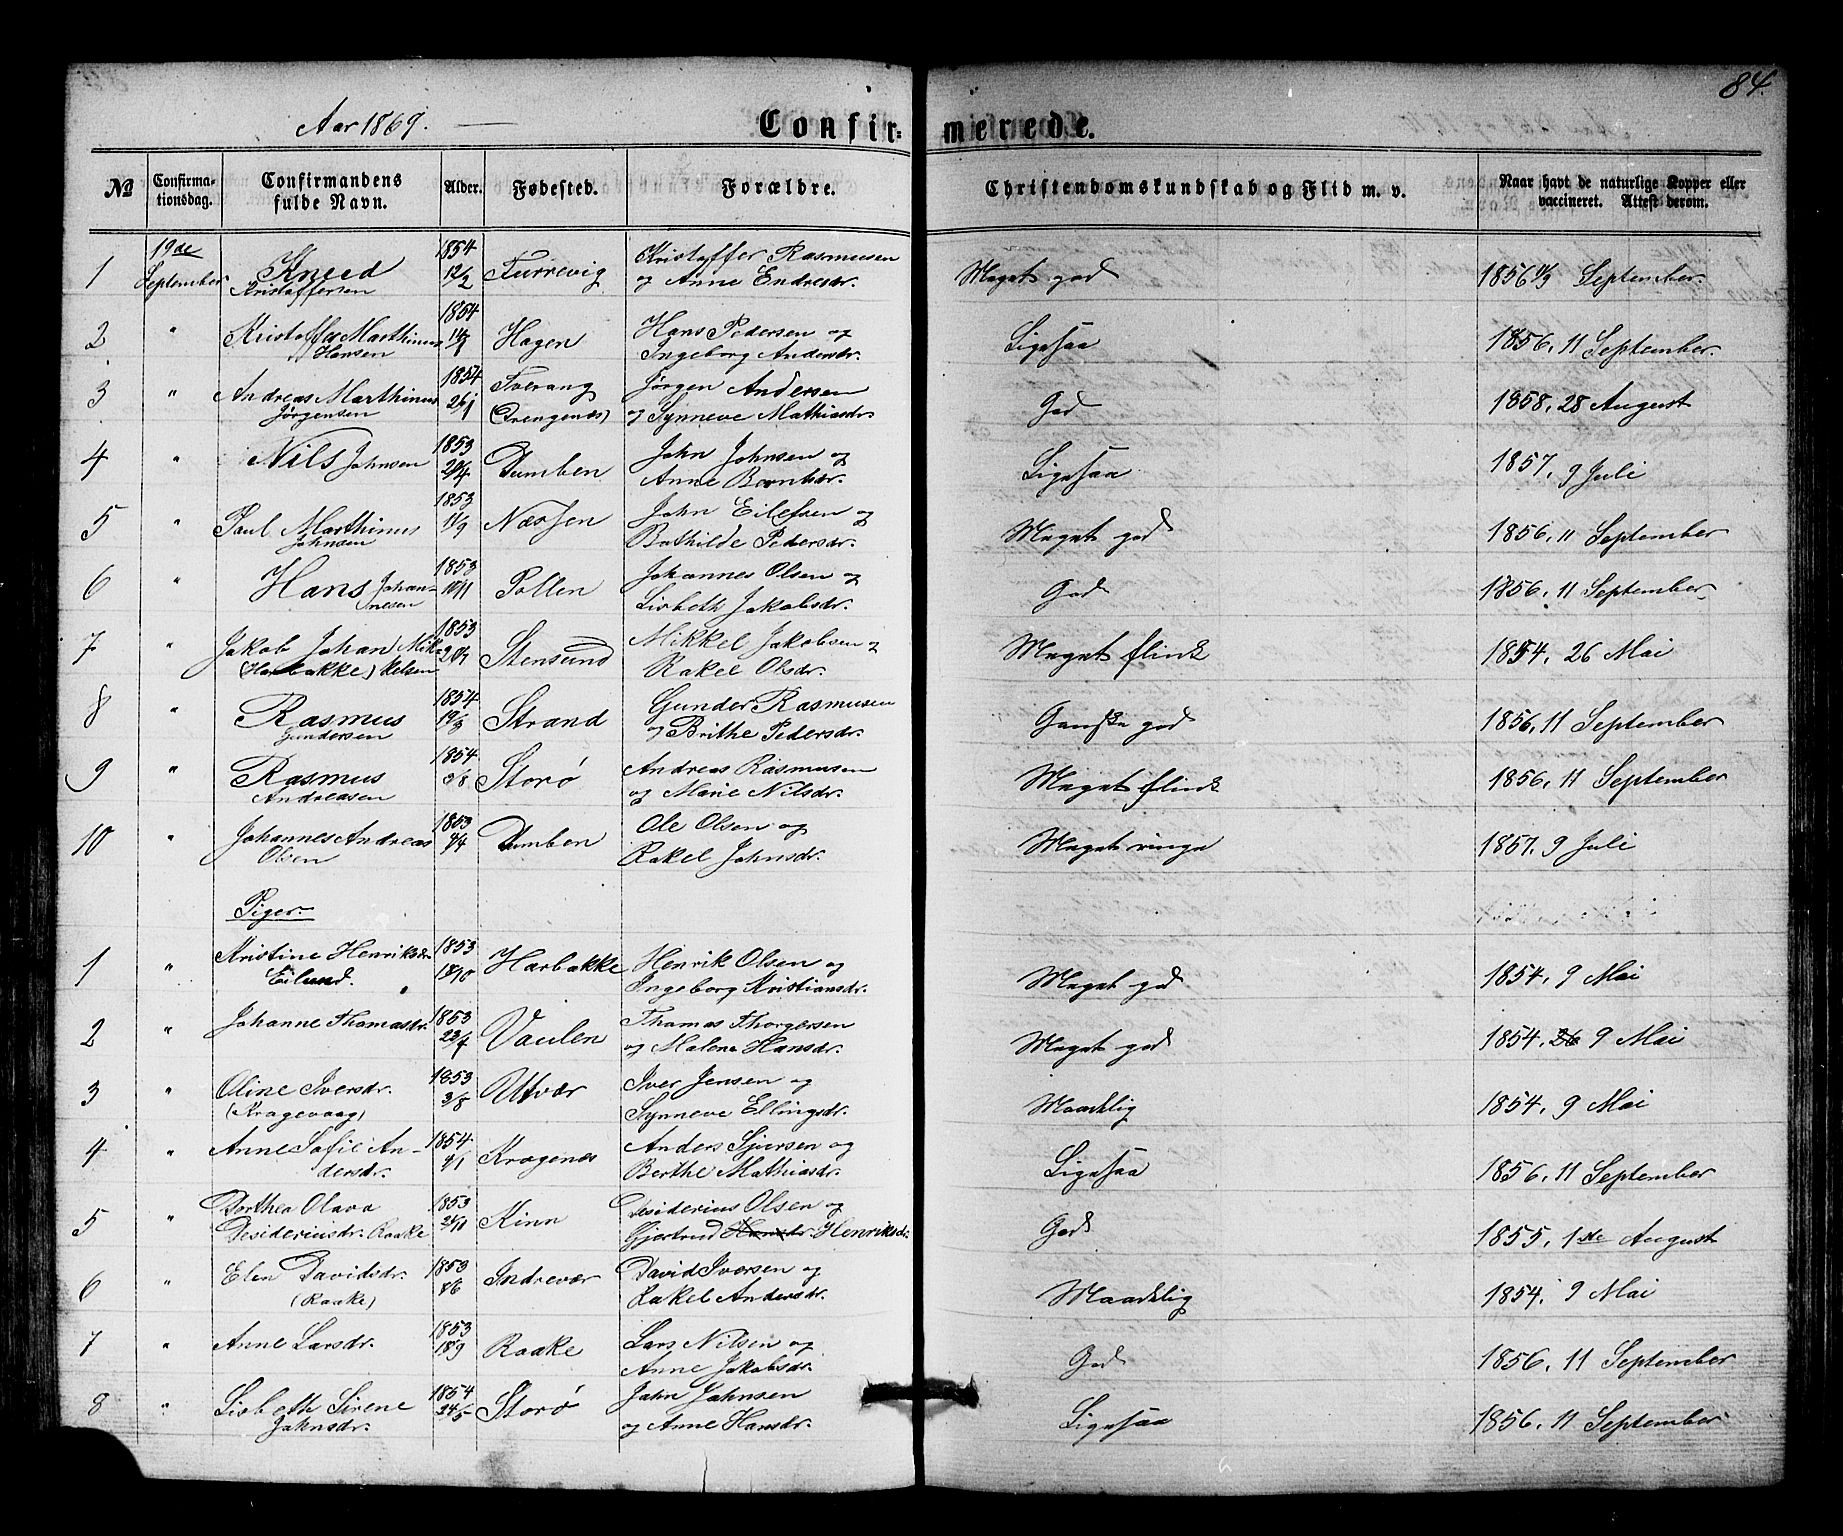 84.
Aar 1869.
Confir= merede.
No
Confirma-
tionsdag.
Confirmandens
fulde Navn.
Alder.
Fødested.
Forældre.
Christendomskundskab og Flid m. v.
Naar havt de naturlige Kopper eller
vaccineret. Attest derom.
1 19de September Kneed Kristoffersen 1854 12/2 Furrevig Kristoffer Rasmusen
og Anne Endresdr. Meget god 1856 11/9 September.
2 " Kristoffer Marthinus Hansen 1854 Hagen Hans Pedersen og
Ingeborg Andersdr. Ligesaa 1856, 11 September.
3 " Andreas Marthinus Jørgensen 1854 26/1 Tverang (Trengenæs) Jørgen Andersen
og Synneve Mathiasdr. God 1858, 28 August
4 " Nils Johnsen 1853 Dumben John Johnsen og
Anne Berntsdr. Ligesaa 1857, 9 Juli
5 " Paul Marthinus Johnsen 1853 11/9 Næssen John Eilefsen og
Bothilde Pedersdr. Meget god 1856, 11 September
6 " Hans Johan-
nesen 1853 10/11 Pollen Johannes Olsen og
Lisbeth Jakobsdr. God 1856, 11 September
7 " Jakob Johan Mik-
(Harbakke) kelsen 1853 Stensund Mikkel Jakobsen og
Rakel Olsdr. Meget flink 1854, 26 Mai
8 " Rasmus Gundersen 1854 19/3 Strand Gunder Rasmusen
og Brithe Pedersdr. Ganske god 1856, 11 September
9 " Rasmus Andreasen 1854 Storø Andreas Rasmusen
og Marie Nilsdr. Meget flink 1856, 11 September
10 " Johannes Andreas Olsen 1853 Dumben Ole Olsen og
Rakel Johnsdr. Meget ringe 1857, 9 Juli
Piger.
1 " Kristine Henriksdr. Eilund. 1853 18/10 Harbakke Henrik Olsen og
Ingeborg Kristiansdr. Meget god 1854, 9 Mai
2 " Johanne Thomasdr. 1853 Vaulen Thomas Thorgersen
og Malene Hansdr. Meget god 1854, 26 9 Mai
3 " Oline Iversdr. (Kragevaag) 1853 3/8 Utvær Iver Jensen og
Synneve Ellingsdr. Maadelig 1854, 9 Mai
4 " Anne Sofie An-
dersdr. 1854 Kragenæs Anders Sjursen og
Berthe Mathiasdr. Ligesaa 1856, 11 September
5 " Dorthea Olava
Desideriusdr. Raake 1853 Kinn Desiderius Olsen og
Gjertrud Hansdr. Henriksdr. God 1855, 1ste August
6 " Elen Davidsdr. (Raake) 1853 Indrevær David Iversen og
Rakel Andersdr. Maadelig 1854, 9 Mai
7 " Anne Larsdr. 1853 18/9 Raake Lars Nilsen og
Anne Jakobsdr. God 1856, 11 September
8 " Lisbeth Sirene Johnsdr. 1854 24/5 Storø John Johnsen
og Anne Hansdr. Ligesaa 1856, 11 September